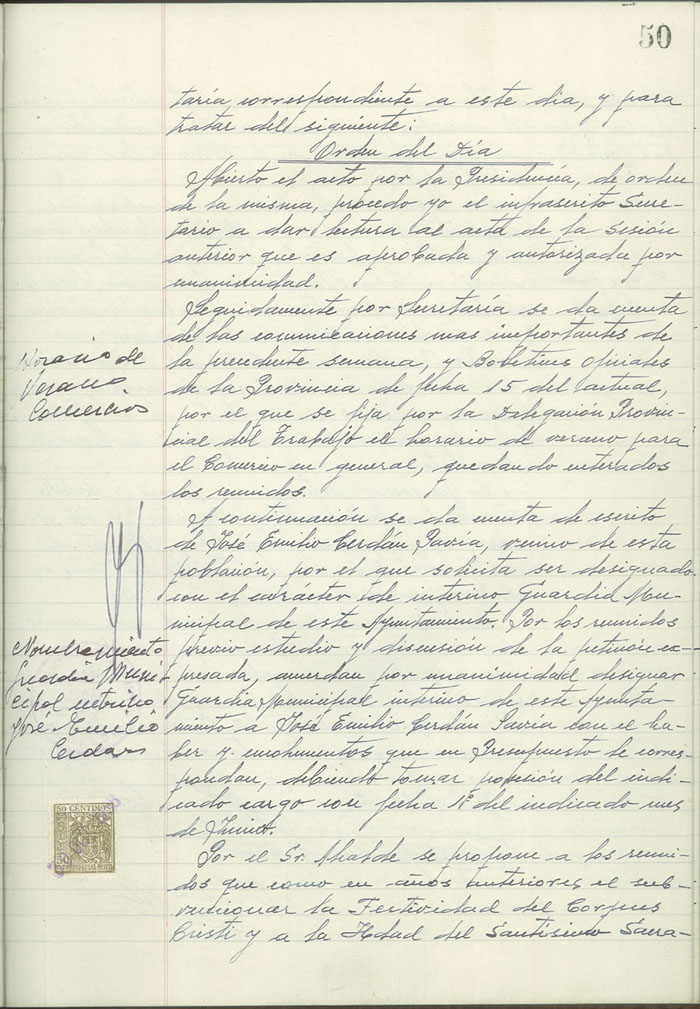 50
taría, correspondiente a este dia, y para
tratar del siguiente:
Orden del Día
Abierto el acto por la Presidencia, de orden
de la misma, procedo yo el infrascrito Secre-
tario a dar lectura al acta de la sesión
anterior que es aprobada y autorizada por
unanimidad.
Seguidamente por Secretaría se da cuenta
de las comunicaciones mas importantes de
la precedente semana, y Boletines Oficiales
de la Provincia de fecha 15 del actual,
por el que se fija por la Delegación Provin-
cial del Trabajo el horario de verano para
el Comercio en general, quedando enterados
los reunidos.
Horario de
Verano
Comercios
A continuación se da cuenta de escrito
de José Emilio Cerdán Pavía, vecino de esta
población, por el que solicita ser designado
con el carácter de interino Guardia Mu-
nicipal de este Ayuntamiento. Por los reunidos
previo estudio y discusión de la petición ex-
presada, acuerdan por unanimidad designar
Guardia Municipal interino de este Ayunta-
miento a José Emilio Cerdán Pavía con el ha-
ber y emolumentos que en Presupuesto le corres-
pondan, debiendo tomar posesión del indi-
cado cargo con fecha 1º del indicado mes
de Junio.
Nombramiento
Guardia Muni-
cipal interino
José Emilio
Cerdan
Por el Sr. Alcalde se propone a los reuni-
dos que como en años anteriores el sub-
vencionar la Festividad del Corpus
Cristi y a la Hdad del Santísimo Sacra-
50 CENTIMOS
50
ESPECIAL MOVIL